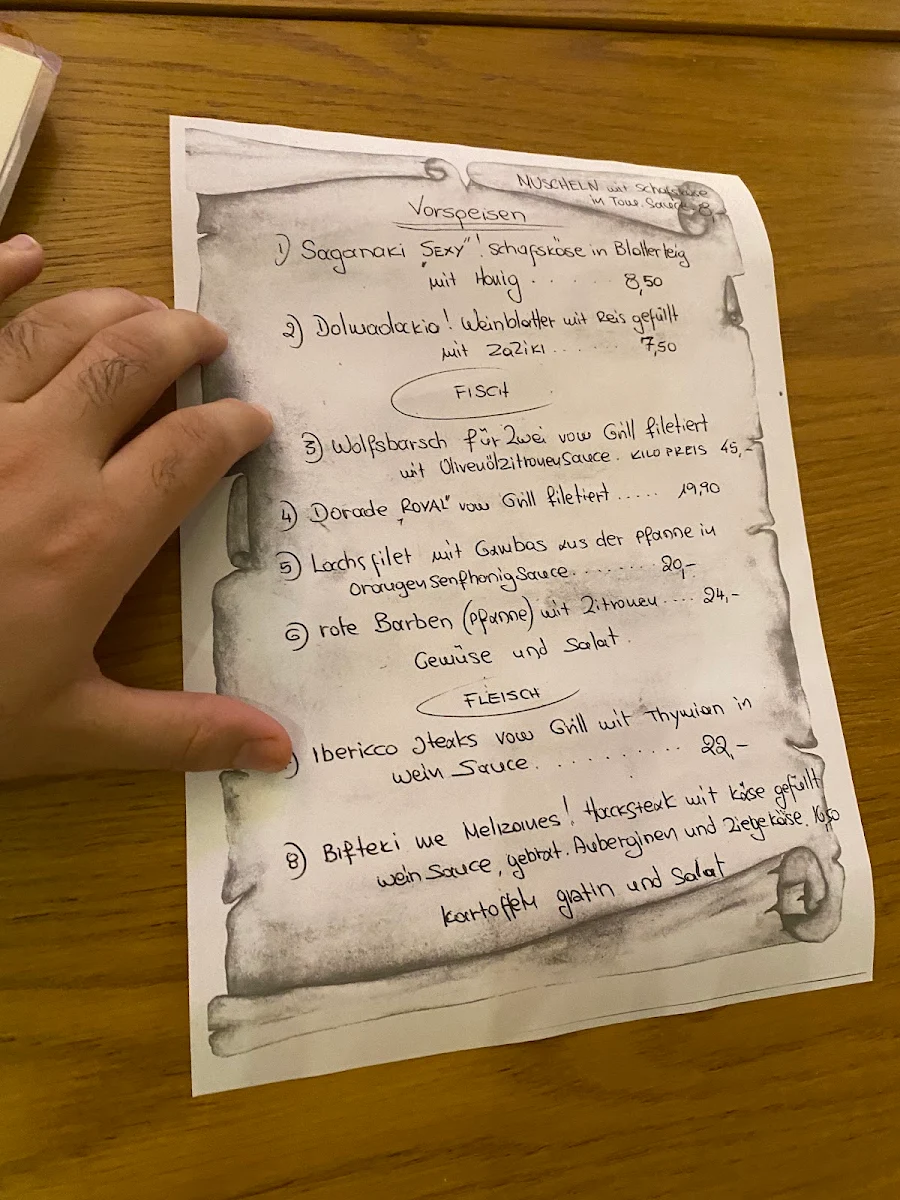 MUSCHELN mit Schafskäse
in Tom. Sauce 8,-
Vorspeisen
1) Saganaki "SEXY"! Schafskäse in Blätterteig
mit Honig . . . . . 8,50
2) Dolmadakia! Weinblätter mit Reis gefüllt
mit ZaZiki . . . . . . 7,50
FISCH
3) Wolfsbarsch für Zwei vom Grill filetiert
mit OlivenölzitronenSauce. KILO PREIS 45,-
4) Dorade "ROYAL" vom Grill filetiert ..... 19,90
5) Lachsfilet mit Gambas aus der Pfanne in
OrangensenfhonigSauce. . . . . . . . 20,-
6) rote Barben (Pfanne) mit Zitronen .... 24,-
Gemüse und Salat.
FLEISCH
) Ibericco Steaks vom Grill mit Thymian in
wein Sauce. . . . . . . . . . 22,-
8) Bifteki me Melizanes! Hacksteak mit käse gefüllt
wein Sauce, gebrat. Auberginen und Ziegekäse. 16,50
kartoffeln gratin und Salat